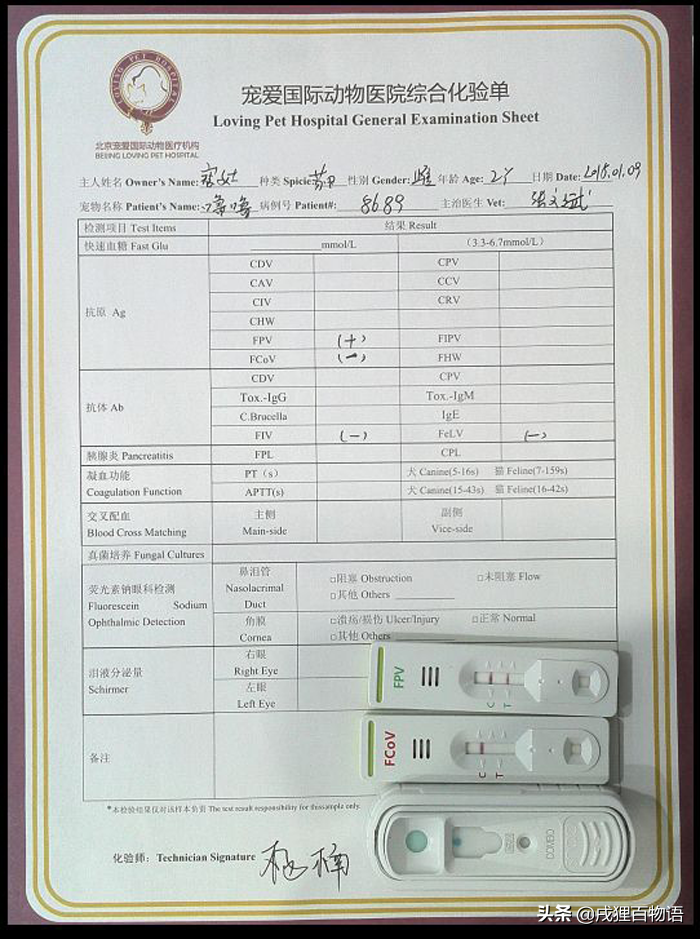 LOVING PET HOSPITAL
北京宠爱国际动物医疗机构
BEIJING LOVING PET HOSPITAL
宠爱国际动物医院综合化验单
Loving Pet Hospital General Examination Sheet
主人姓名 Owner's Name: 种类 Spicie: 性别 Gender: 雌 年龄 Age: 2Y 日期 Date: 2018.01.09
宠物名称 Patient's Name: 噜噜 病例号 Patient#: 8689 主治医生 Vet:
检测项目 Test Items 结果 Result
快速血糖 Fast Glu mmol/L (3.3-6.7mmol/L)
抗原 Ag
CDV CPV
CAV CCV
CIV CRV
CHW
FPV (+) FIPV
FCoV (-) FHW
抗体 Ab
CDV CPV
Tox.-IgG Tox.-IgM
C.Brucella IgE
FIV (-) FeLV (-)
胰腺炎 Pancreatitis FPL CPL
凝血功能
Coagulation Function
PT (s) 犬 Canine(5-16s) 猫 Feline(7-159s)
APTT(s) 犬 Canine(15-43s) 猫 Feline(16-42s)
交叉配血
Blood Cross Matching
主侧
Main-side
副侧
Vice-side
真菌培养 Fungal Cultures
荧光素钠眼科检测
Fluorescein Sodium
Ophthalmic Detection
鼻泪管
Nasolacrimal
Duct
□阻塞 Obstruction □未阻塞 Flow
□其他 Others
角膜
Cornea
□溃疡/损伤 Ulcer/Injury □正常 Normal
□其他 Others
泪液分泌量
Schirmer
右眼
Right Eye
左眼
Left Eye
备注
FPV
C T
FCoV
C T
COMBO
*本检验结果仅对该样本负责 The test result responsibility for thissample only.
化验师: Technician Signature
头条 @戌狸百物语